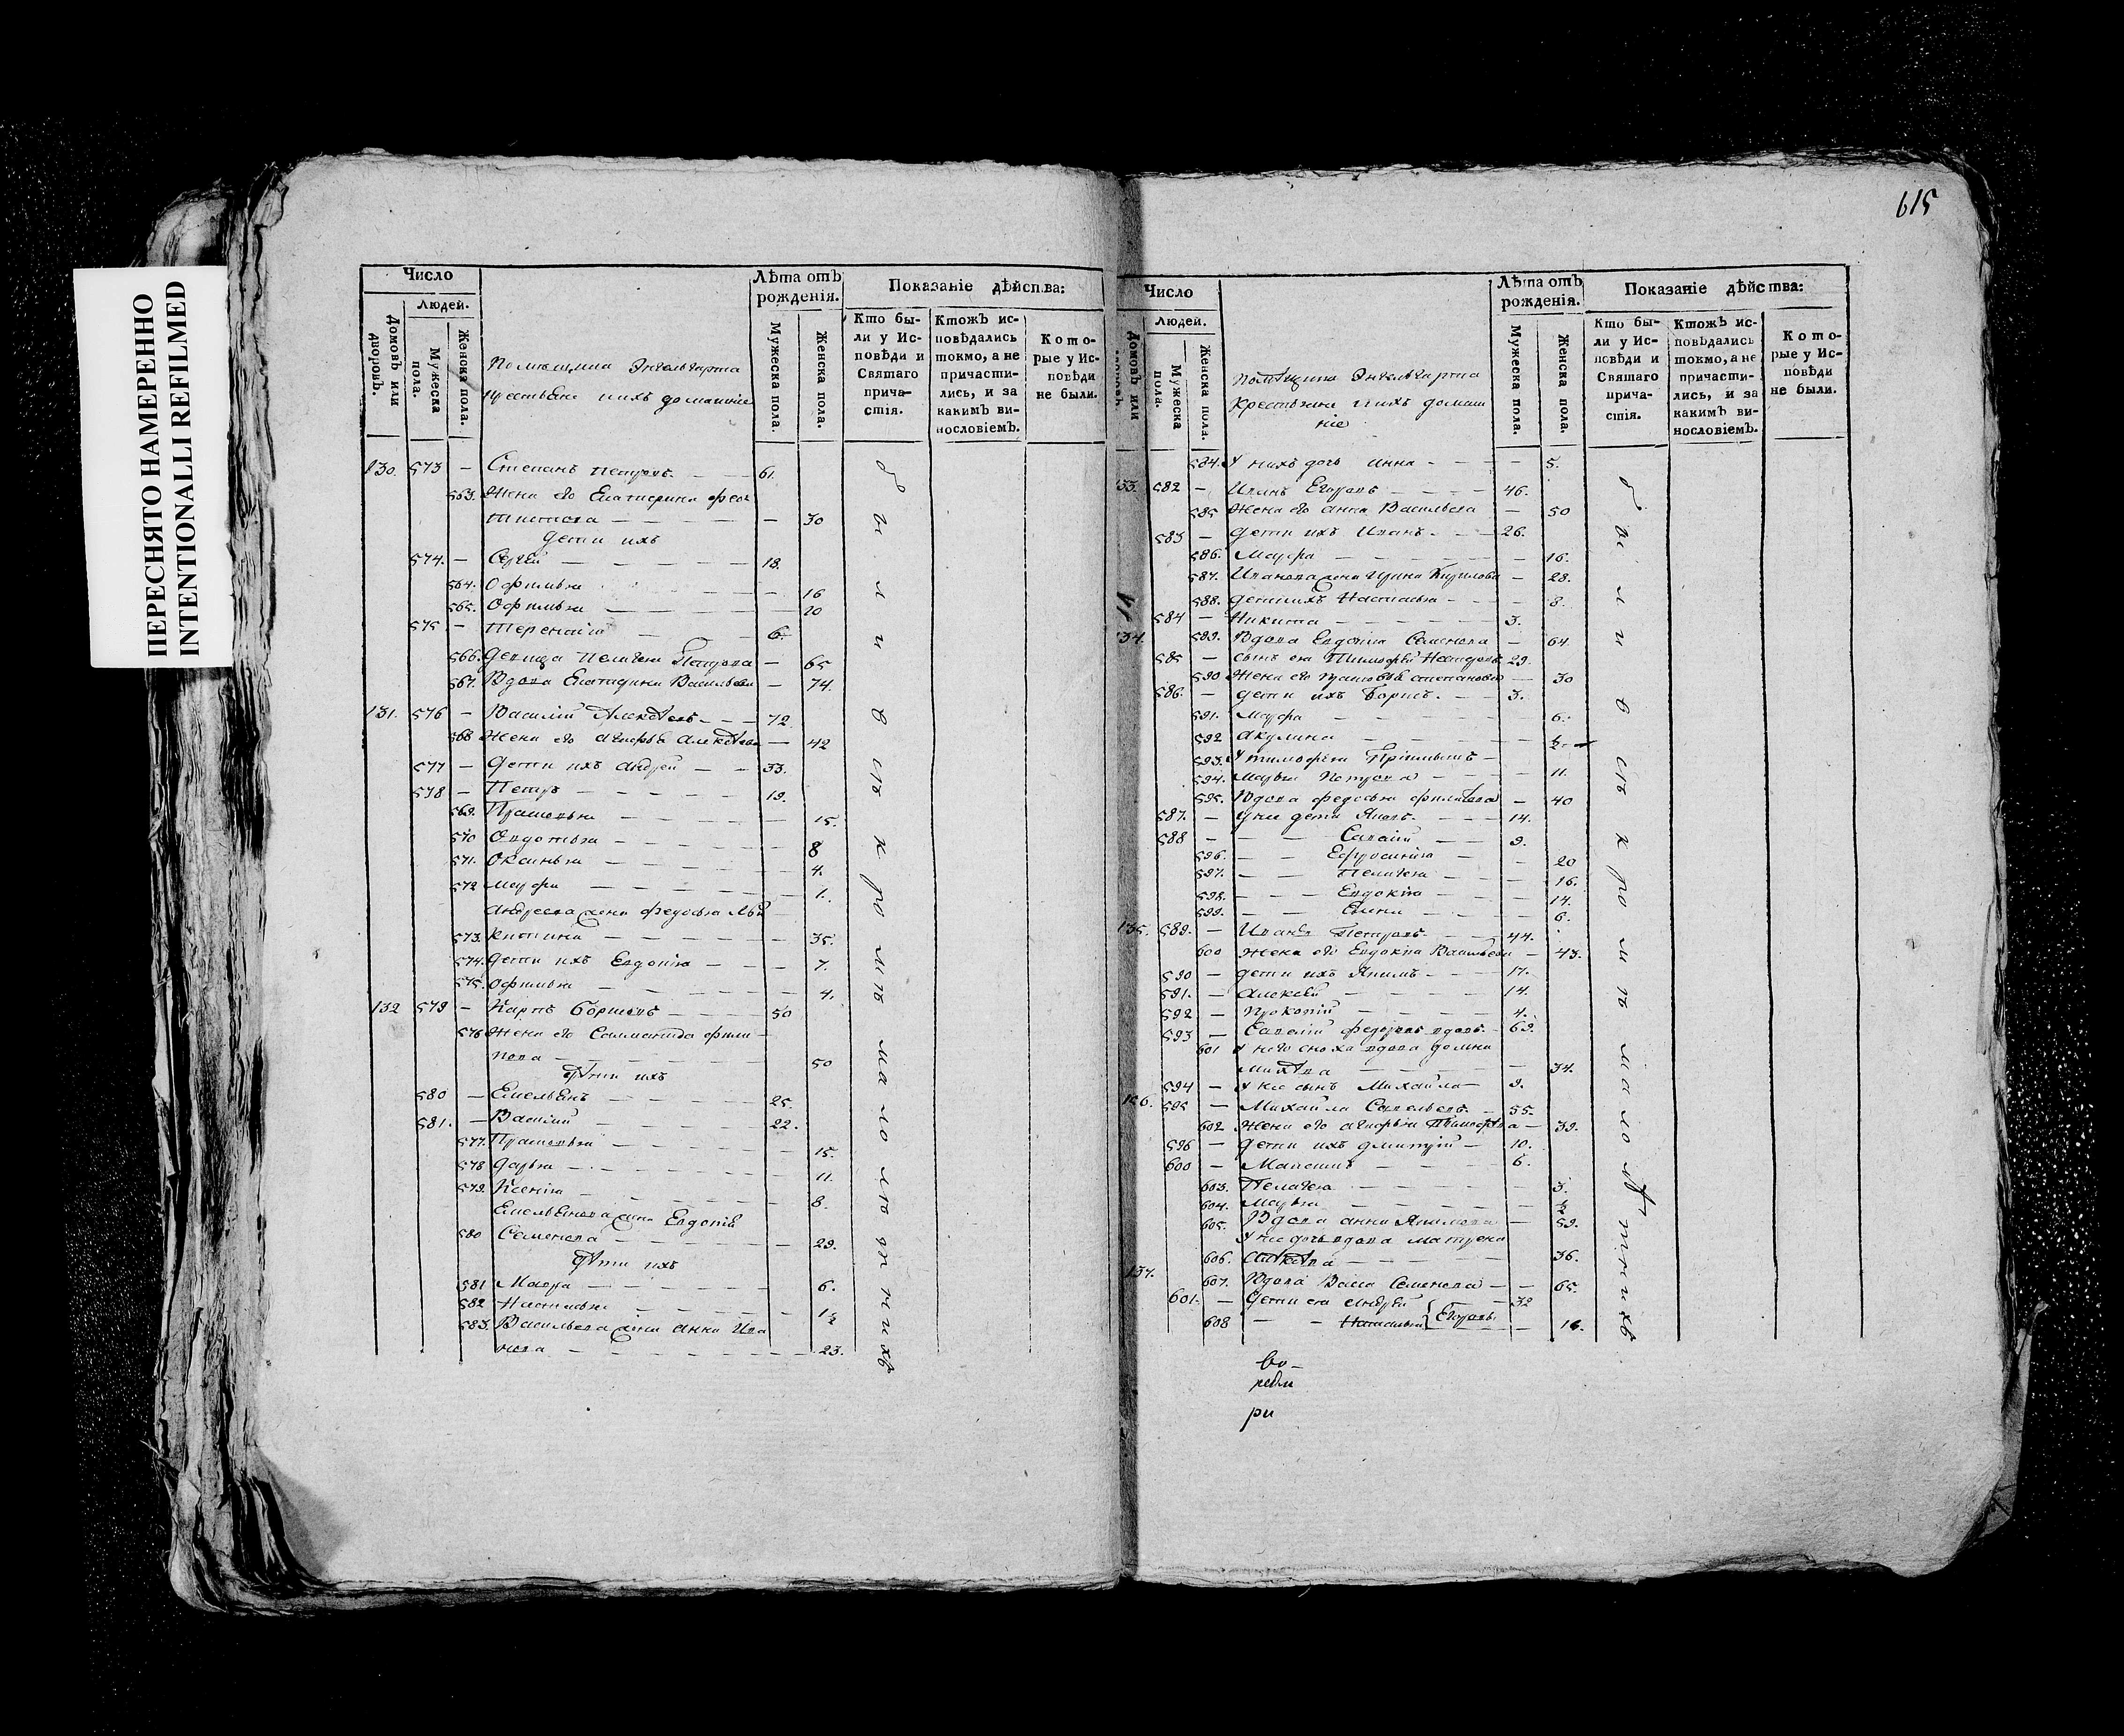 ПЕРЕСНЯТО НАМЕРЕННО
INTENTIONALLI REFILMED
615
Число
Людей.
Домовъ или дворовъ.
Мужеска пола.
Женска пола.
Помещика Энгельгарта
крестьяне и ихъ домашніе
Лѣта отъ рожденія.
Мужеска пола.
Женска пола.
Показаніе дѣйства:
Кто были у Исповѣди и Святаго причастія.
Ктожъ исповѣдались токмо, а не причастились, и за какимъ винословіемъ.
Которые у Исповѣди не были.
130. 573 – Степанъ Петровъ 61.
563. Жена его Екатерина Фео
ктистова 30
Дети ихъ
574. – Сергей 18.
564. Офимья 16
565. Офимья 20
575. – Терентій 6.
566. Девица Пелагея Петрова – 65
567. Вдова Екатерина Васильева – 74.
131. 576 – Василій Алексѣевъ 72
568 Жена его Агафья Алексѣева – 42
577 – Дети ихъ Андрей 33.
578 – Петръ 19.
569. Прасковья 15.
570 Овдотья 8
571. Оксинья 4.
572 Марфа 1.
Андреева жена Федосья Ми
573. китина 35.
574. Дети ихъ Евдокія 7.
575. Офимья 4.
132 579 – Карпъ Борисовъ 50
576 Жена его Соломонида Фили
пова 50
Дѣти ихъ
580 – Емельянъ 25.
581. – Василій 22.
577. Прасковья 15.
578 Дарья 11.
579. Ксенія 8.
Емельянова жена Евдокія
580 Семенова 29.
Дѣти ихъ
581 Мавра 6.
582 Настасья 1½
583. Васильева жена Анна Ива
нова 23.
были всѣ кромѣ малолѣтнихъ
Число
Людей.
Домовъ или дворовъ.
Мужеска пола.
Женска пола.
Помѣщика Энгельгарта
крестьяне и ихъ домаш
ніе
Лѣта отъ рожденія.
Мужеска пола.
Женска пола.
Показаніе дѣйства:
Кто были у Исповѣди и Святаго причастія.
Ктожъ исповѣдались токмо, а не причастились, и за какимъ винословіемъ.
Которые у Исповѣди не были.
584. У нихъ дочь Анна 5.
133. 582 – Иванъ Егоровъ 46.
585 Жена его Анна Васильева – 50
583 – Дети ихъ Иванъ 26.
586. Марфа 16.
587. Иванова жена Ирина Кирилова – 28.
588. Дети ихъ Настасья 8.
584 – Никита 3.
134. 589. Вдова Евдокія Семенова – 64.
585 – Сынъ ея Тимофей 29.
590 Жена его Степанова 30
586. – Дети ихъ Борисъ 3.
591. Марфа 6.
592 Акулина ½
593. У Тимофея
594. Марья Петрова 11.
595. Вдова Федосья Филипова – 40
587. – У ней дети Яковъ 14.
588 – Савелій 9.
596. Ефросинія 20
597. Пелагея 16.
598. Евдокія 14.
599. Елена 6.
135. 589. – Иванъ Петровъ 44.
600 Жена его Евдокія Васильева – 43.
590 – Дети ихъ Якимъ 17.
591. – Алексей 14.
592 – Прокопій 4.
593 – Савелій Федоровъ вдовъ 69.
601 У него сноха вдова Домна
34.
594 – У нее сынъ Михайла 9.
136. 595 – Михайла Савельевъ 55.
602. Жена его Агафья Тимофѣева 39.
596 – Дети ихъ Дмитрій 10.
600 – Максимъ 6.
603. Пелагея 3.
604. Марья ½
605. Вдова Анна Якимова 59.
У нее дочь вдова Матрена
606. 36.
137. 607. Вдова Васа Семенова 65.
601. – Дети ея Андрей 32
608 Наталья { Егоровы 16.
были всѣ кромѣ малолѣтнихъ